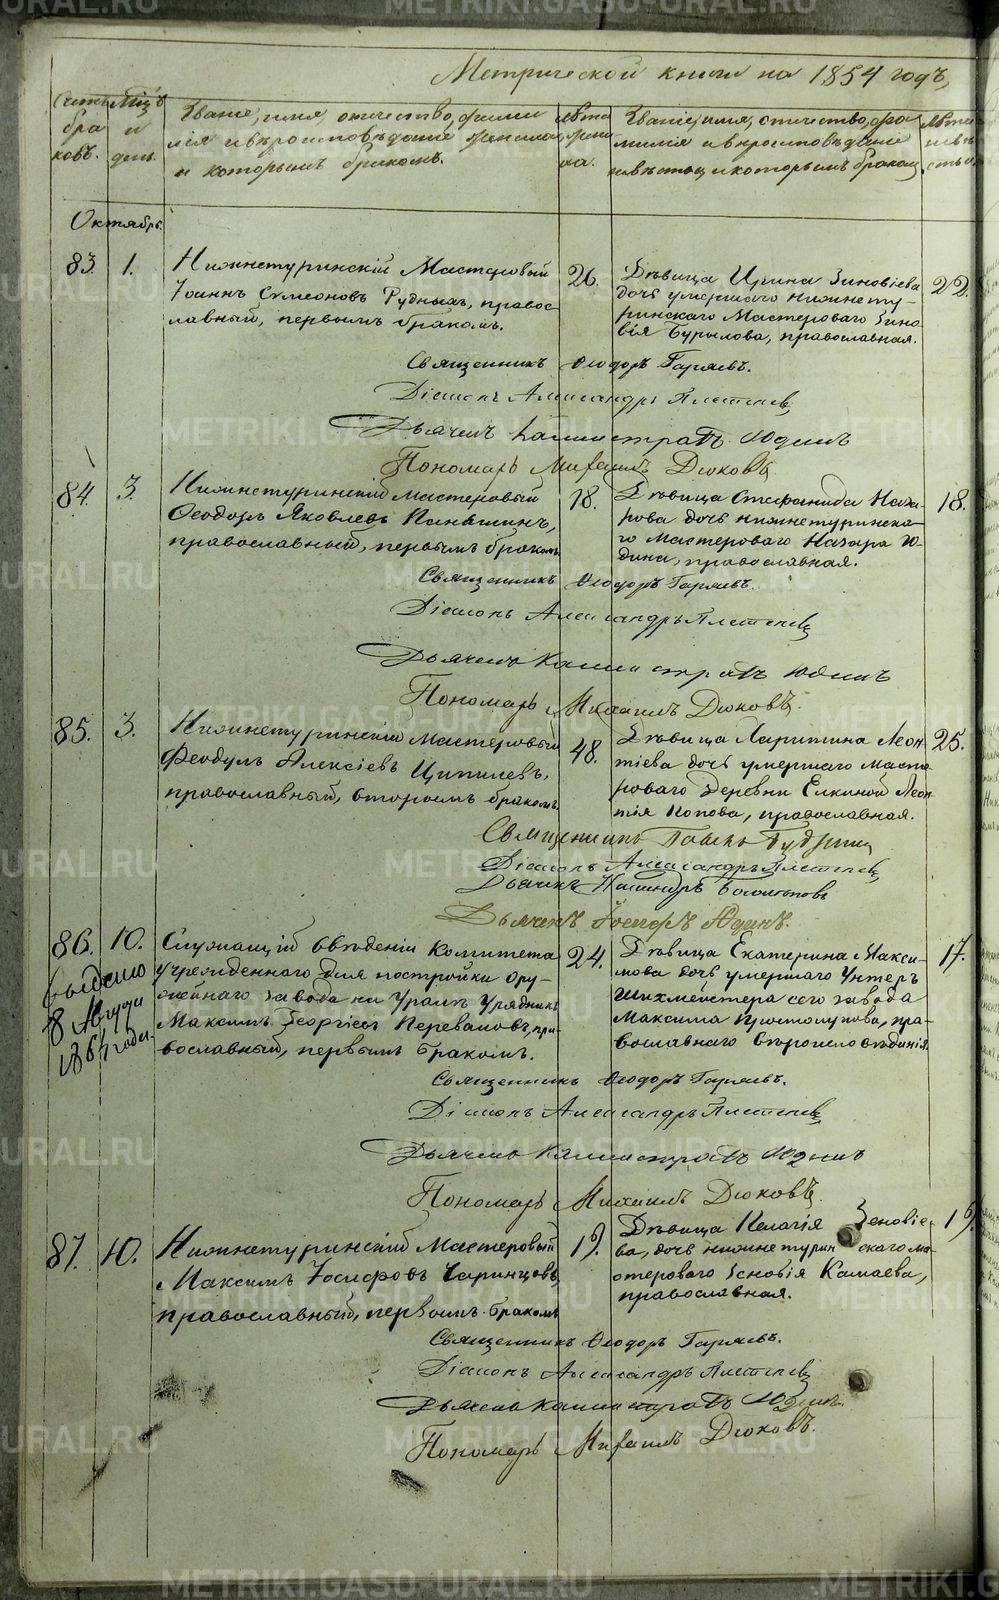 Метрической книги на 1854 годъ,
Счетъ браковъ.
Мцъ и день.
Званіе, имя, отечество, фами
лія и вѣроисповѣданіе жениха
и которымъ бракомъ.
Лѣта жени
ха.
Званіе, имя, отечество, фа
милія и вѣроисповѣданіе
невѣсты и которымъ бракомъ
Лѣта
невѣ
сты.
Октябрь.
83. 1. Нижнетуринскій Мастеровый
Іоаннъ Симеоновъ Рудныхъ, правос-
лавный, первымъ бракомъ.
26.
Дѣвица Ирина Зиновіева
дочь умершаго нижнету-
ринскаго Мастероваго Зино
вія Бурылова, православная.
22.
Священникъ Ѳеодоръ Гаряевъ.
Діаконъ Александръ Плетневъ
Дьячекъ Каллистратъ Юдинъ
Пономарь Михаилъ Дюковъ
84. 3. Нижнетуринскій мастеровый
Ѳеодоръ Яковлевъ Паньшинъ,
православный, первымъ бракомъ
18.
Дѣвица Стефанида Наза-
рова дочь нижнетуринска-
го Мастероваго Назара Ю-
дина, православная.
18.
Священникъ Ѳеодоръ Гаряевъ.
Діаконъ Александръ Плетневъ
Дьячекъ Каллистратъ Юдинъ
Пономарь Михаилъ Дюковъ.
85. 3. Нижнетуринскій мастеровый
Феодулъ Алексіевъ Ципилевъ,
православный, вторымъ бракомъ.
48.
Дѣвица Харитина Леон-
тіева дочь умершаго Масте
роваго Деревни Елкиной Леон
тія Попова, православная.
25.
Священникъ
Діаконъ Александръ Плетневъ
Дьячекъ
Дьячекъ Іосифъ Юдинъ.
86. 10. Служащій въ вѣденіи Комитета
учрежденнаго для постройки ору-
жейнаго завода на Уралѣ Урядникъ
Максимъ Георгіевъ Переваловъ, пра-
вославный, первымъ бракомъ.
выдано
8 Августа
1864 года.
24.
Дѣвица Екатерина Макси-
мова дочь умершаго Унтеръ
Шихмейстера сего завода
Максима Простолупова, пра-
вославнаго вѣроисповѣданія.
17.
Священникъ Ѳеодоръ Гаряевъ.
Діаконъ Александръ Плетневъ
Дьячекъ Каллистратъ Юдинъ
Пономарь Михаилъ Дюковъ.
87. 10. Нижнетуринскій Мастеровый
Максимъ Іосифовъ Чаринцовъ,
православный, первымъ бракомъ
19.
Дѣвица Пелагія Зеновіе-
ва, дочь нижнетуринскаго ма-
стероваго Зеновія Камаева,
православная.
19.
Священникъ Ѳеодоръ Гаряевъ.
Діаконъ Александръ Плетневъ
Дьячекъ Каллистратъ Юдинъ.
Пономарь Михаилъ Дюковъ.
METRIKI.GASO-URAL.RU